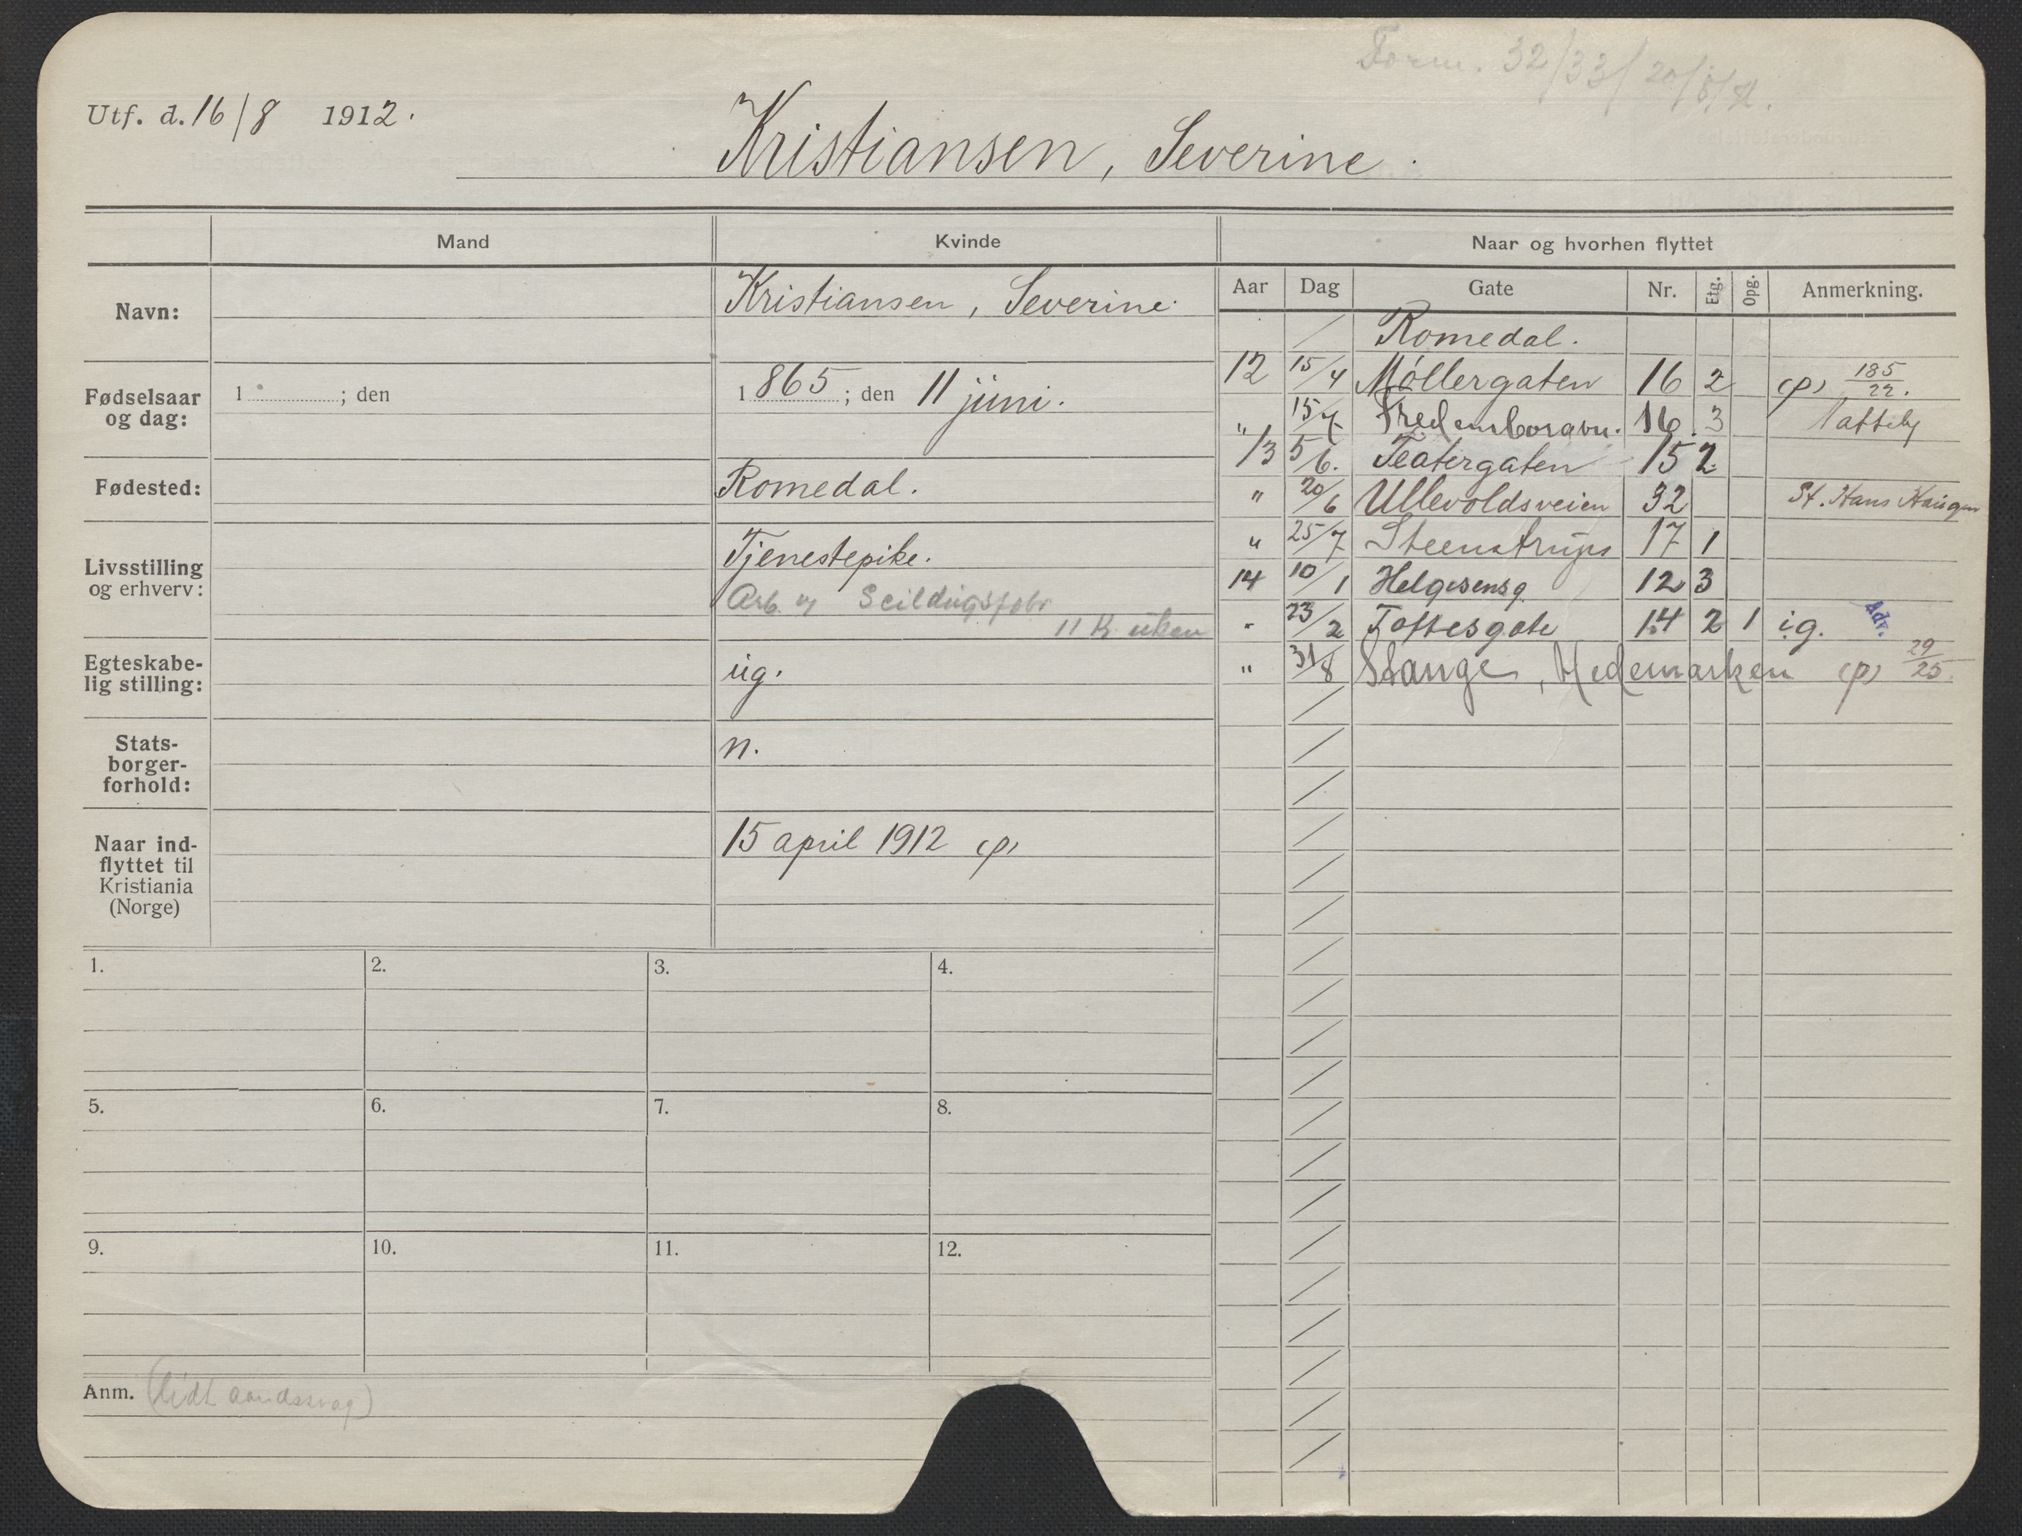 Form. 32/33/20/8/
Utf. d. 16/8 1912.
Kristiansen, Severine.
Mand
Kvinde
Naar og hvorhen flyttet
Navn:
Kristiansen, Severine.
Fødselsaar og dag:
1 ; den
1865; den 11 juni.
Fødested:
Romedal.
Livsstilling og erhverv:
Tjenestepike.
Arb. v Seildugsfabr
11 K. uken
Egteskabe-
lig stilling:
ug.
Stats-
borger-
forhold:
n.
Naar ind-
flyttet til
Kristiania
(Norge)
15 april 1912 (p)
Aar Dag Gate Nr. Etg. Opg. Anmerkning.
/ Romedal.
12 15/4 Møllergaten 16 2 (p) 185/22.
" 15/7 Fredensborgvn. 16. 3
13 5/6. Teatergaten 15 2
" 20/6 Ullevoldsveien 32 St. Hans Haugen
" 25/7 Steenstrups 17 1
14 10/1 Helgesensg 12 3
" 23/2 Toftesgate 14 2 1 ig. Adr.
" 31/8 Stange, Hedemarken (p) 29/25.
1. 2. 3. 4.
5. 6. 7. 8.
9. 10. 11. 12.
Anm. (lidt aandssvag)